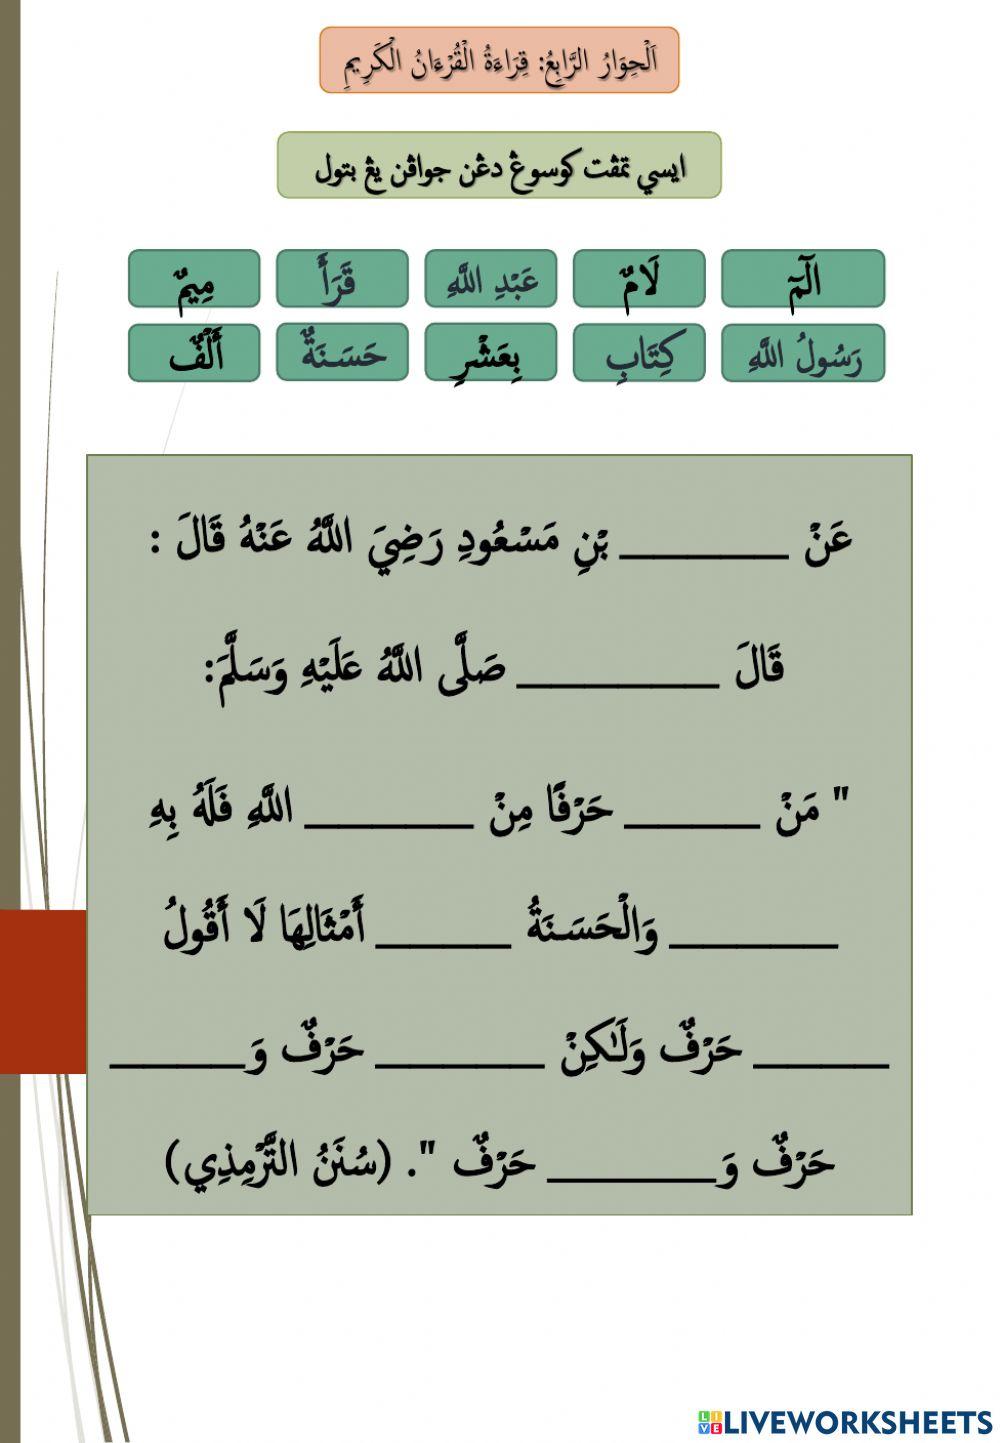 اَلْحِوَارُ الرَّابِعُ: قِرَاءَةُ الْقُرْءَانُ الْكَرِيمِ
ايسي تمڤت كوسوڠ دڠن جواڤن يڠ بتول
الٓمٓ لَامٌ عَبْدِ اللَّهِ قَرَأَ مِيمٌ
رَسُولُ اللَّهِ كِتَابِ بِعَشْرِ حَسَنَةٌ أَلْفٌ
عَنْ __________ بْنِ مَسْعُودٍ رَضِيَ اللَّهُ عَنْهُ قَالَ :
قَالَ ____________ صَلَّى اللَّهُ عَلَيْهِ وَسَلَّمَ:
" مَنْ ________ حَرْفًا مِنْ __________ اللَّهِ فَلَهُ بِهِ
__________ وَالْحَسَنَةُ ________ أَمْثَالِهَا لَا أَقُولُ
________ حَرْفٌ وَلَٰكِنْ __________ حَرْفٌ وَ________
حَرْفٌ وَ__________ حَرْفٌ ". (سُنَنُ التِّرْمِذِي)
LIVEWORKSHEETS